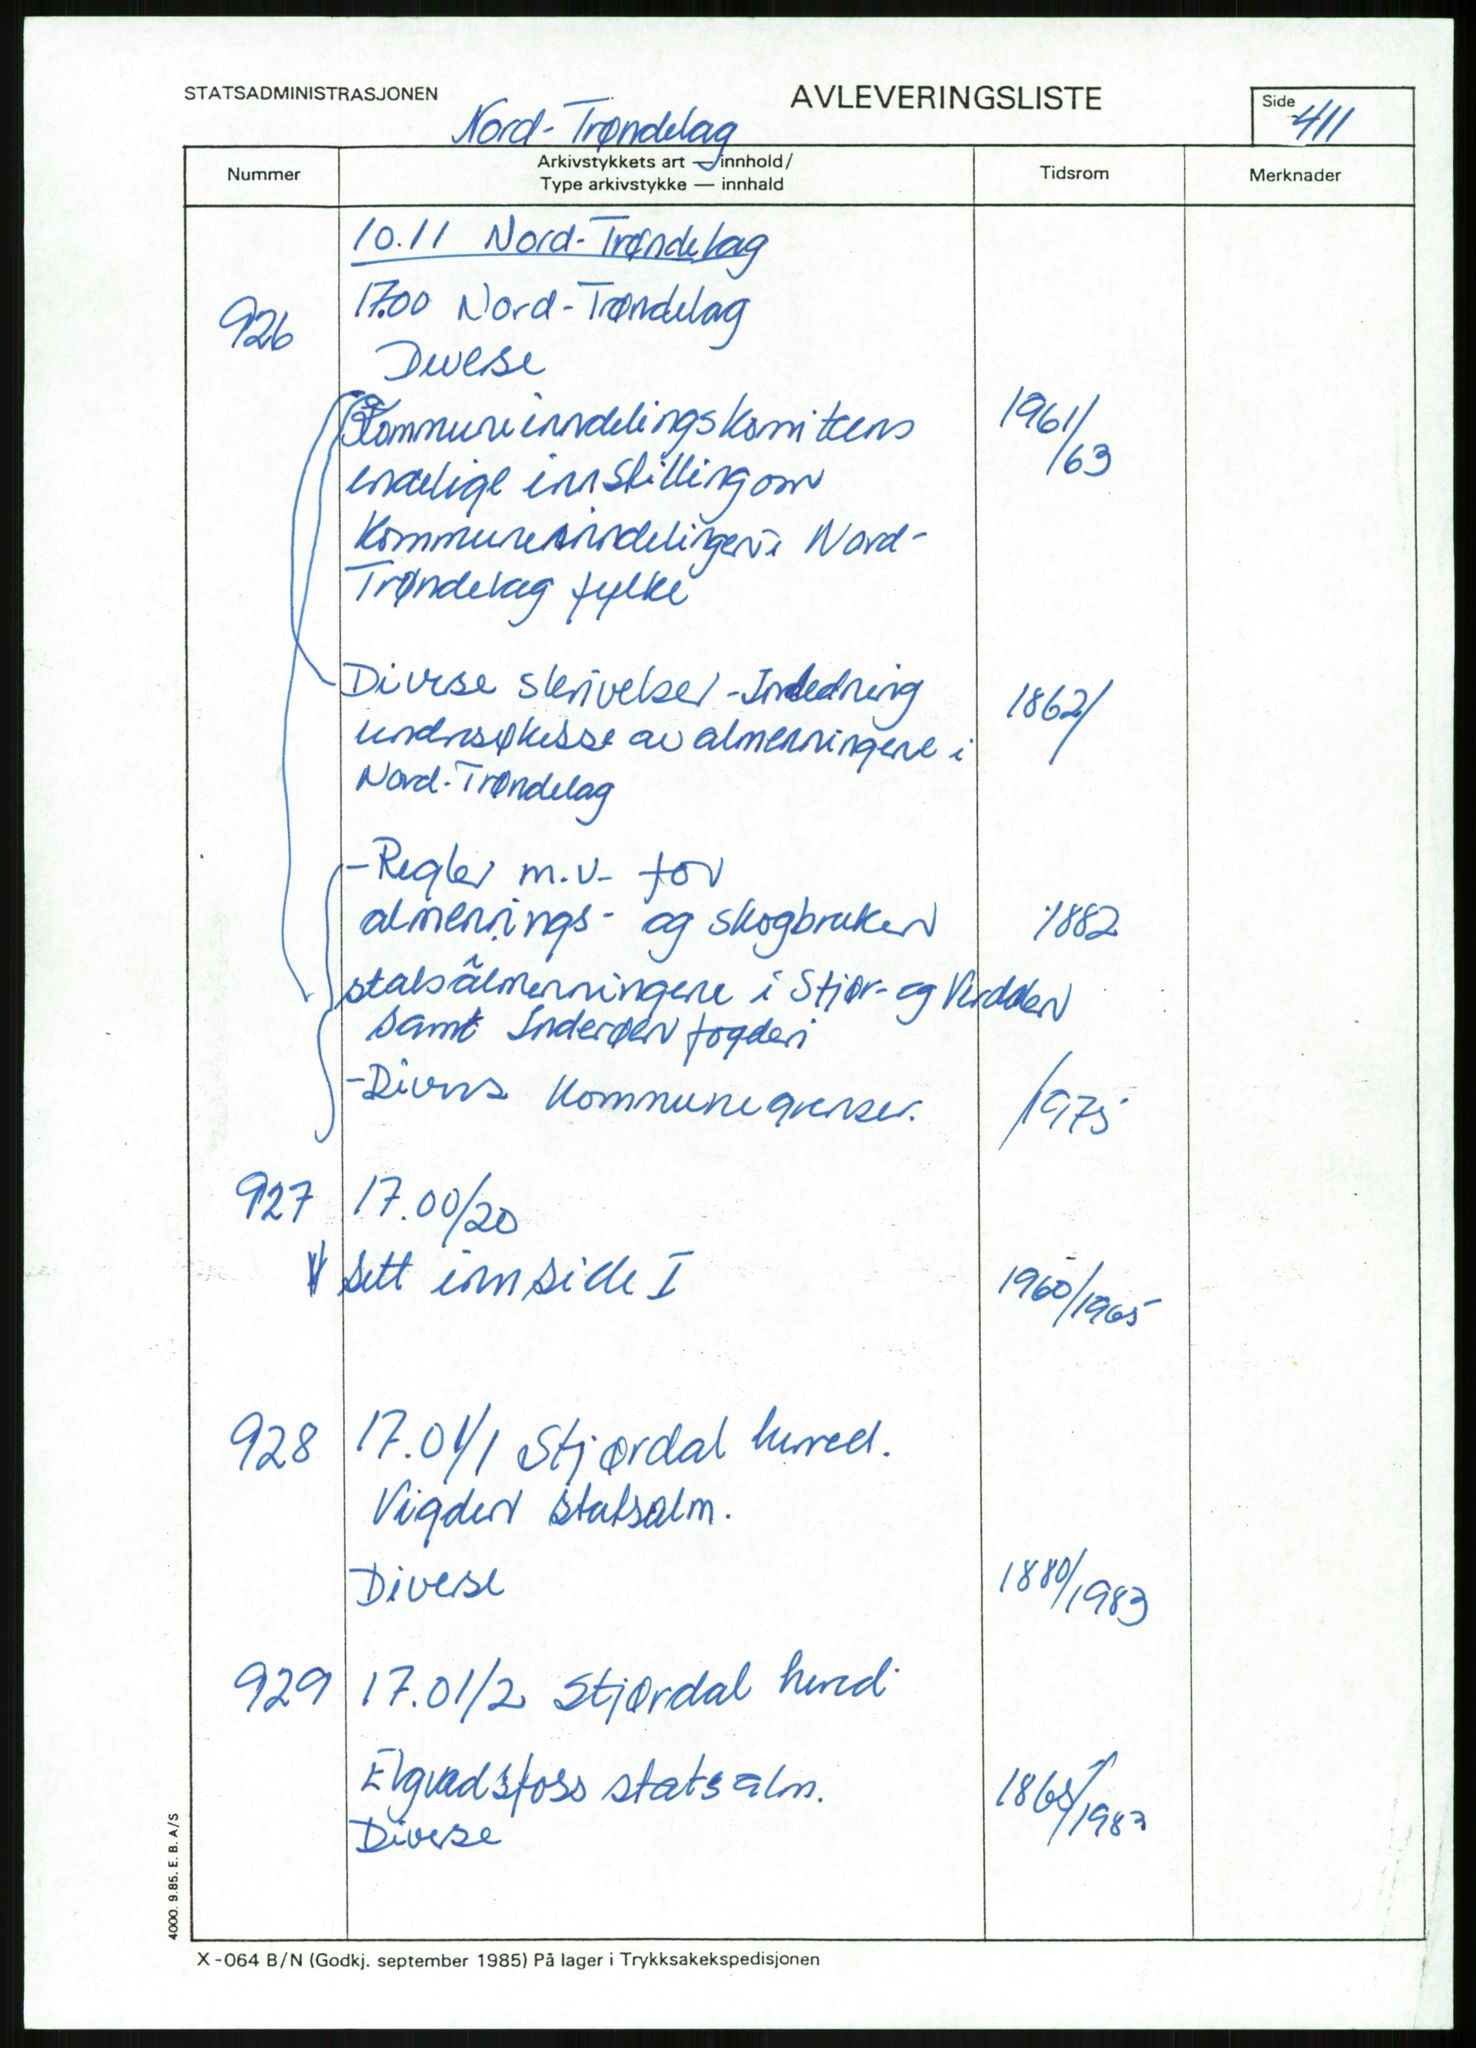 STATSADMINISTRASJONEN
AVLEVERINGSLISTE
Side
411
Nord-Trøndelag
Nummer
Arkivstykkets art — innhold/
Type arkivstykke — innhald
Tidsrom
Merknader
10.11 Nord-Trøndelag
926
17.00 Nord-Trøndelag
Diverse
Kommuneinndelingskomiteens
1961/
/63
endelige innstilling om
Kommuneinndelingen i Nord-
Trøndelag fylke
Diverse skrivelser - Indledning
1862/
undersøkelse av almenningene i
Nord-Trøndelag
- Regler m.v. for
almennings- og skogbruken
1882
statsalmenningene i Stjør- og Verdalen
samt Inderøen fogderi
- Divers Kommunegrenser.
/1975
927
17.00/20
Sett inn side I
1960/1965
928
17.01/1 Stjørdal herred.
Vigden statsalm.
Diverse
1880/1983
929
17.01/2 Stjørdal herred
Elgvadsfoss statsalm.
1865/1983
Diverse
4000. 9.85. E. B. A/S
X-064 B/N (Godkj. september 1985) På lager i Trykksakekspedisjonen